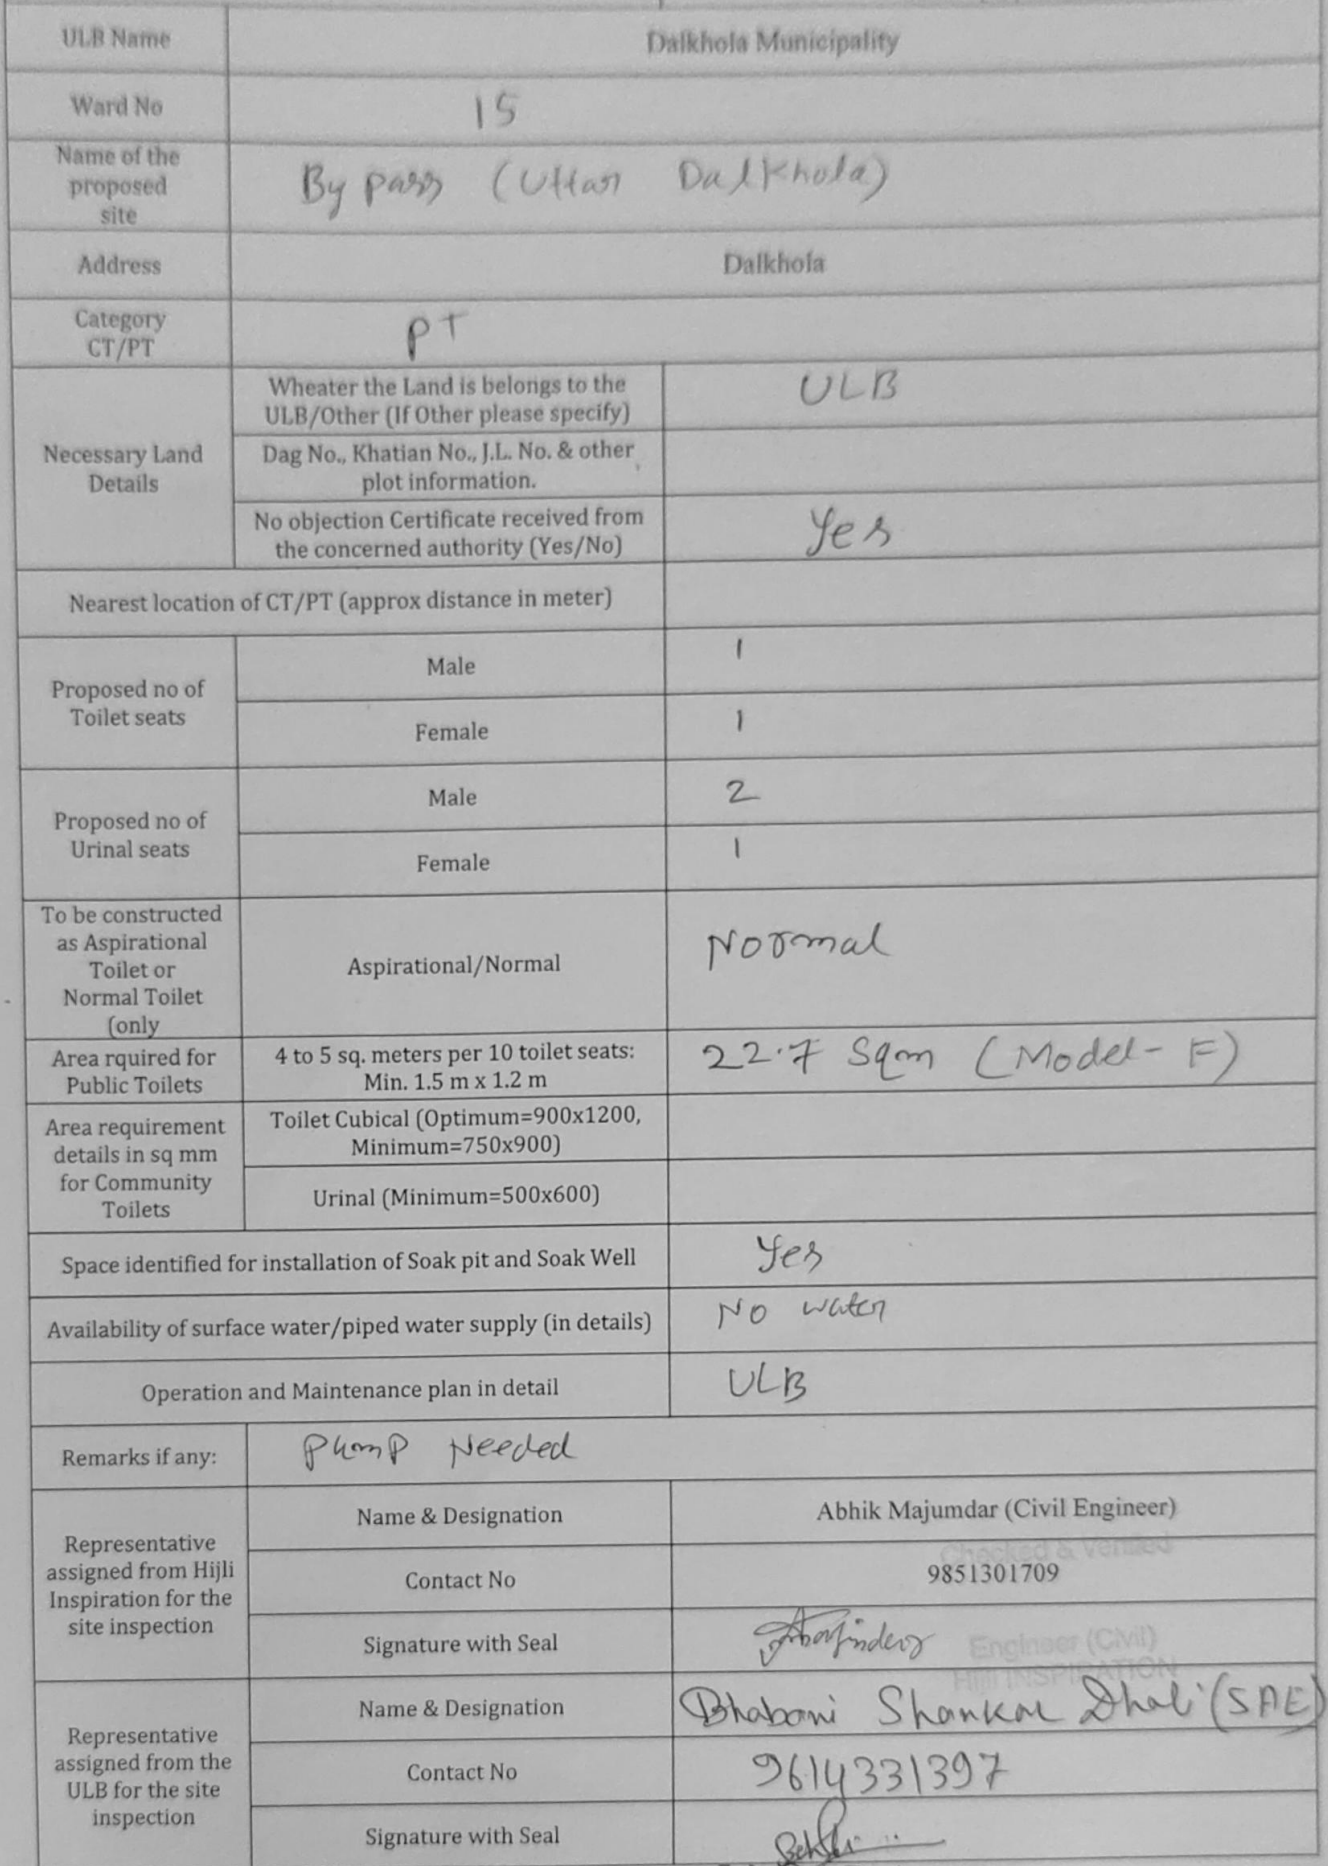 ULB Name
Dalkhola Municipality
Ward No
15
Name of the
proposed
site
By pass (Uttar Dalkhola)
Address
Dalkhola
Category
CT/PT
PT
Necessary Land
Details
Wheater the Land is belongs to the
ULB/Other (If Other please specify)
ULB
Dag No., Khatian No., J.L. No. & other
plot information.
No objection Certificate received from
the concerned authority (Yes/No)
Yes
Nearest location of CT/PT (approx distance in meter)
Proposed no of
Toilet seats
Male
1
Female
1
Proposed no of
Urinal seats
Male
2
Female
1
To be constructed
as Aspirational
Toilet or
Normal Toilet
(only
Aspirational/Normal
Normal
Area rquired for
Public Toilets
4 to 5 sq. meters per 10 toilet seats:
Min. 1.5 m x 1.2 m
22.7 Sqm (Model- F)
Area requirement
details in sq mm
for Community
Toilets
Toilet Cubical (Optimum=900x1200,
Minimum=750x900)
Urinal (Minimum=500x600)
Space identified for installation of Soak pit and Soak Well
Yes
Availability of surface water/piped water supply (in details)
No water
Operation and Maintenance plan in detail
ULB
Remarks if any:
Pump Needed
Representative
assigned from Hijli
Inspiration for the
site inspection
Name & Designation
Abhik Majumdar (Civil Engineer)
Checked & Verified
Contact No
9851301709
Signature with Seal
Engineer (Civil)
Hijli INSPIRATION
Representative
assigned from the
ULB for the site
inspection
Name & Designation
Bhabani Shankar Dhali (SAE)
Contact No
9614331397
Signature with Seal